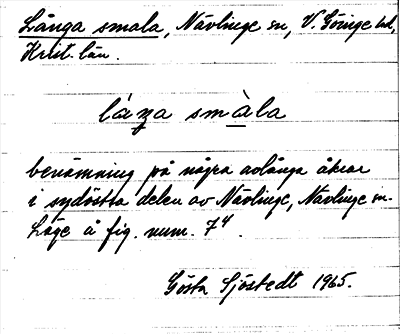 Långa smala, Nävlinge sn, V. Göinge hd,
Krist. län.
láŋa smàla
benämning på några avlånga åkrar
i sydöstra delen av Nävlinge, Nävlinge sn.
Läge å fig. num. 7⁴.
Gösta Sjöstedt 1965.